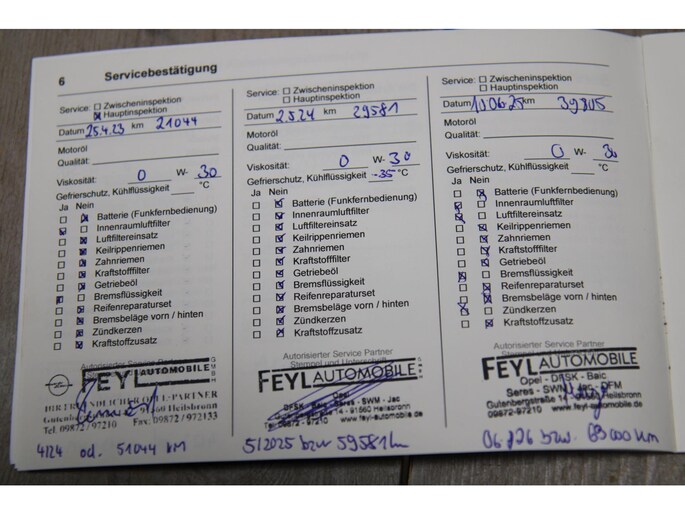 6 Servicebestätigung
Service: Zwischeninspektion
Hauptinspektion
Datum 25.4.23 km 21044
Motoröl
Qualität:
Viskosität: 0 W- 30
Gefrierschutz, Kühlflüssigkeit °C
Ja Nein
Batterie (Funkfernbedienung)
Innenraumluftfilter
Luftfiltereinsatz
Keilrippenriemen
Zahnriemen
Kraftstofffilter
Getriebeöl
Bremsflüssigkeit
Reifenreparaturset
Bremsbeläge vorn / hinten
Zündkerzen
Kraftstoffzusatz
Autorisierter Service Partner
FEYL AUTOMOBILE GMBH
IHR FREUNDLICHER OPEL-PARTNER
91560 Heilsbronn
Tel. 09872 / 97210 Fax: 09872 / 972133
4/24 od. 51044 km
Service: Zwischeninspektion
Hauptinspektion
Datum 2.5.24 km 29581
Motoröl
Qualität:
Viskosität: 0 W- 30
Gefrierschutz, Kühlflüssigkeit -35 °C
Ja Nein
Batterie (Funkfernbedienung)
Innenraumluftfilter
Luftfiltereinsatz
Keilrippenriemen
Zahnriemen
Kraftstofffilter
Getriebeöl
Bremsflüssigkeit
Reifenreparaturset
Bremsbeläge vorn / hinten
Zündkerzen
Kraftstoffzusatz
Autorisierter Service Partner
Stempel und Unterschrift
FEYL AUTOMOBILE
Opel
DFSK - Baic
Seres - SWM - Jac
14 - 91560 Heilsbronn
09872-97210 www.feyl-automobile.de
5/2025 bzw 59581km
Service: Zwischeninspektion
Hauptinspektion
Datum 10.06.25 km 39805
Motoröl
Qualität:
Viskosität: 0 W- 30
Gefrierschutz, Kühlflüssigkeit °C
Ja Nein
Batterie (Funkfernbedienung)
Innenraumluftfilter
Luftfiltereinsatz
Keilrippenriemen
Zahnriemen
Kraftstofffilter
Getriebeöl
Bremsflüssigkeit
Reifenreparaturset
Bremsbeläge vorn / hinten
Zündkerzen
Kraftstoffzusatz
Autorisierter Service Partner
Stempel und Unterschrift
FEYL AUTOMOBILE
Opel - DFSK - Baic
Seres - SWM - Jac - DFM
Gutenbergstraße 14 - 91560 Heilsbronn
09872-97210 www.feyl-automobile.de
06.26 bzw. 69000 km